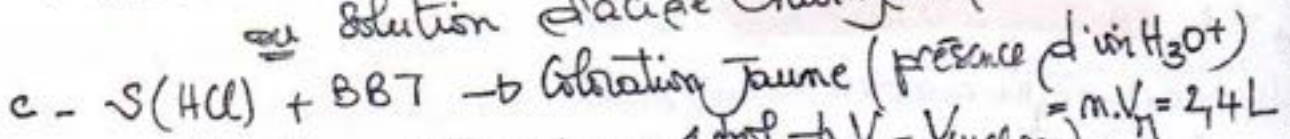 ou Solution d'acide
c - S(HCl) + BBT → Coloration Jaune (présence d'ion H3O+)
= n.Vn = 2,4L